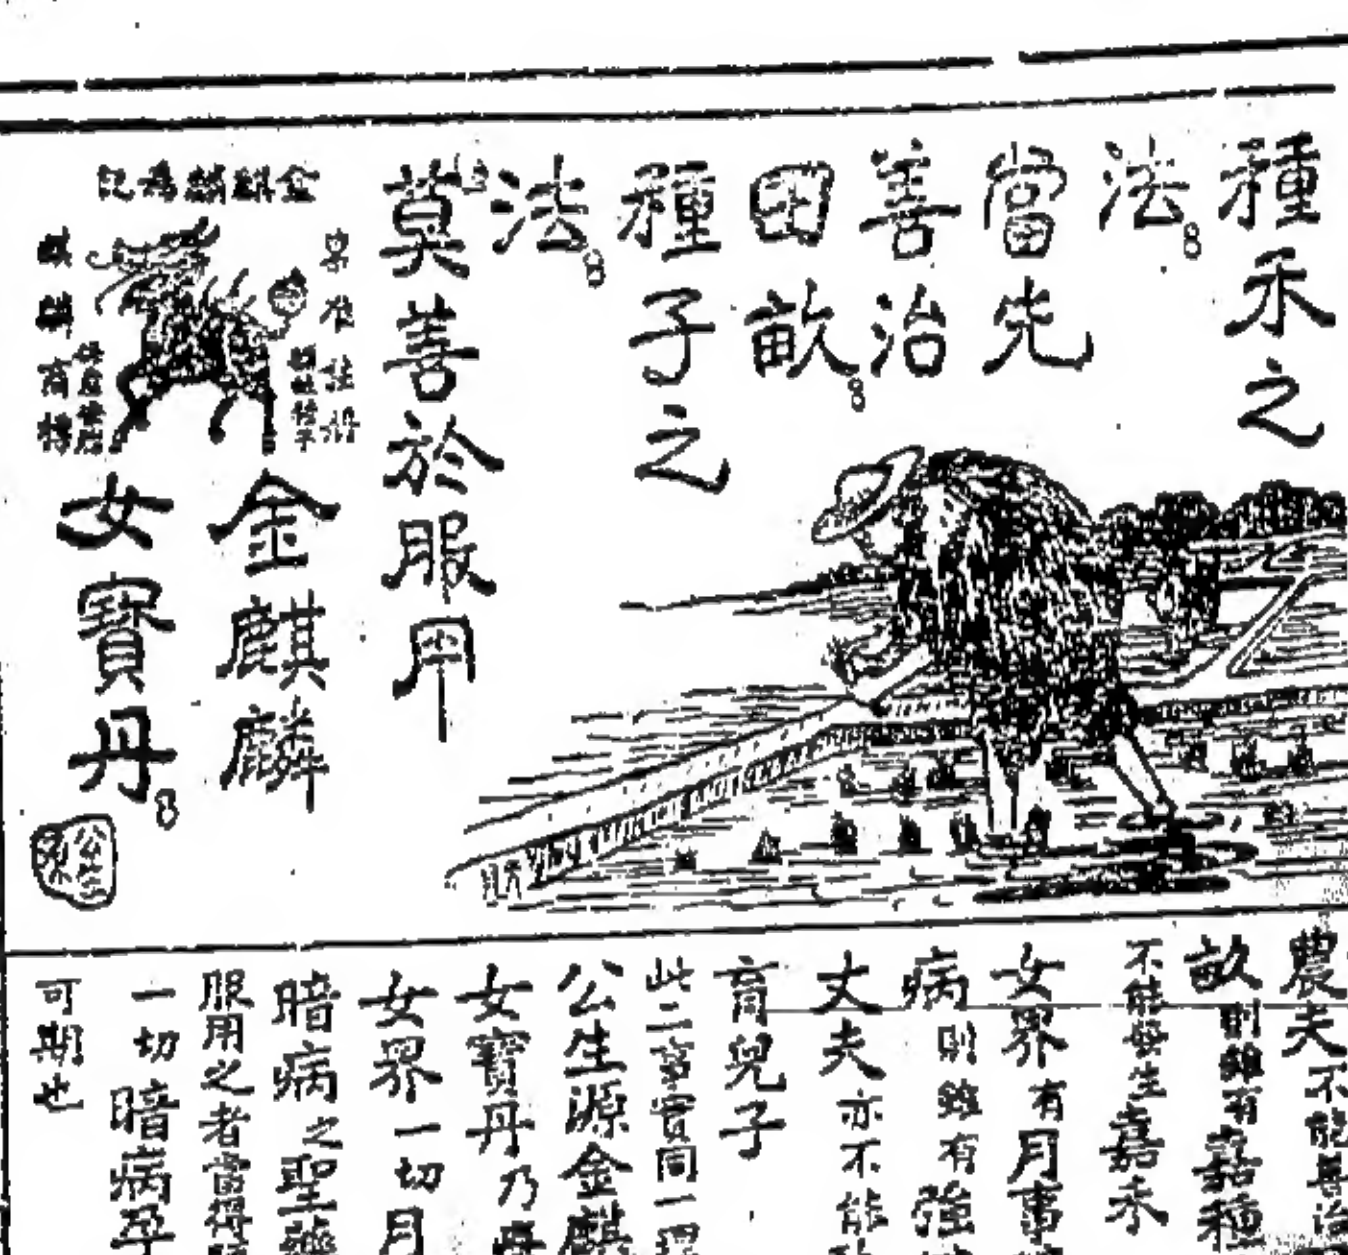 種禾之
法
當先
善治
田畝
種子之
法
莫善於服用
金麒麟為記
麒麟商標
金麒麟
女寶丹
農夫不能善治
畝則雖有嘉種
不能發生嘉禾
女界有月事
病則雖有強
丈夫亦不能
育兒子
此二事實同一理
公生源金麒
女寶丹乃
女界一切月
暗病之聖藥
服用之者當得
一切暗病孕
可期也